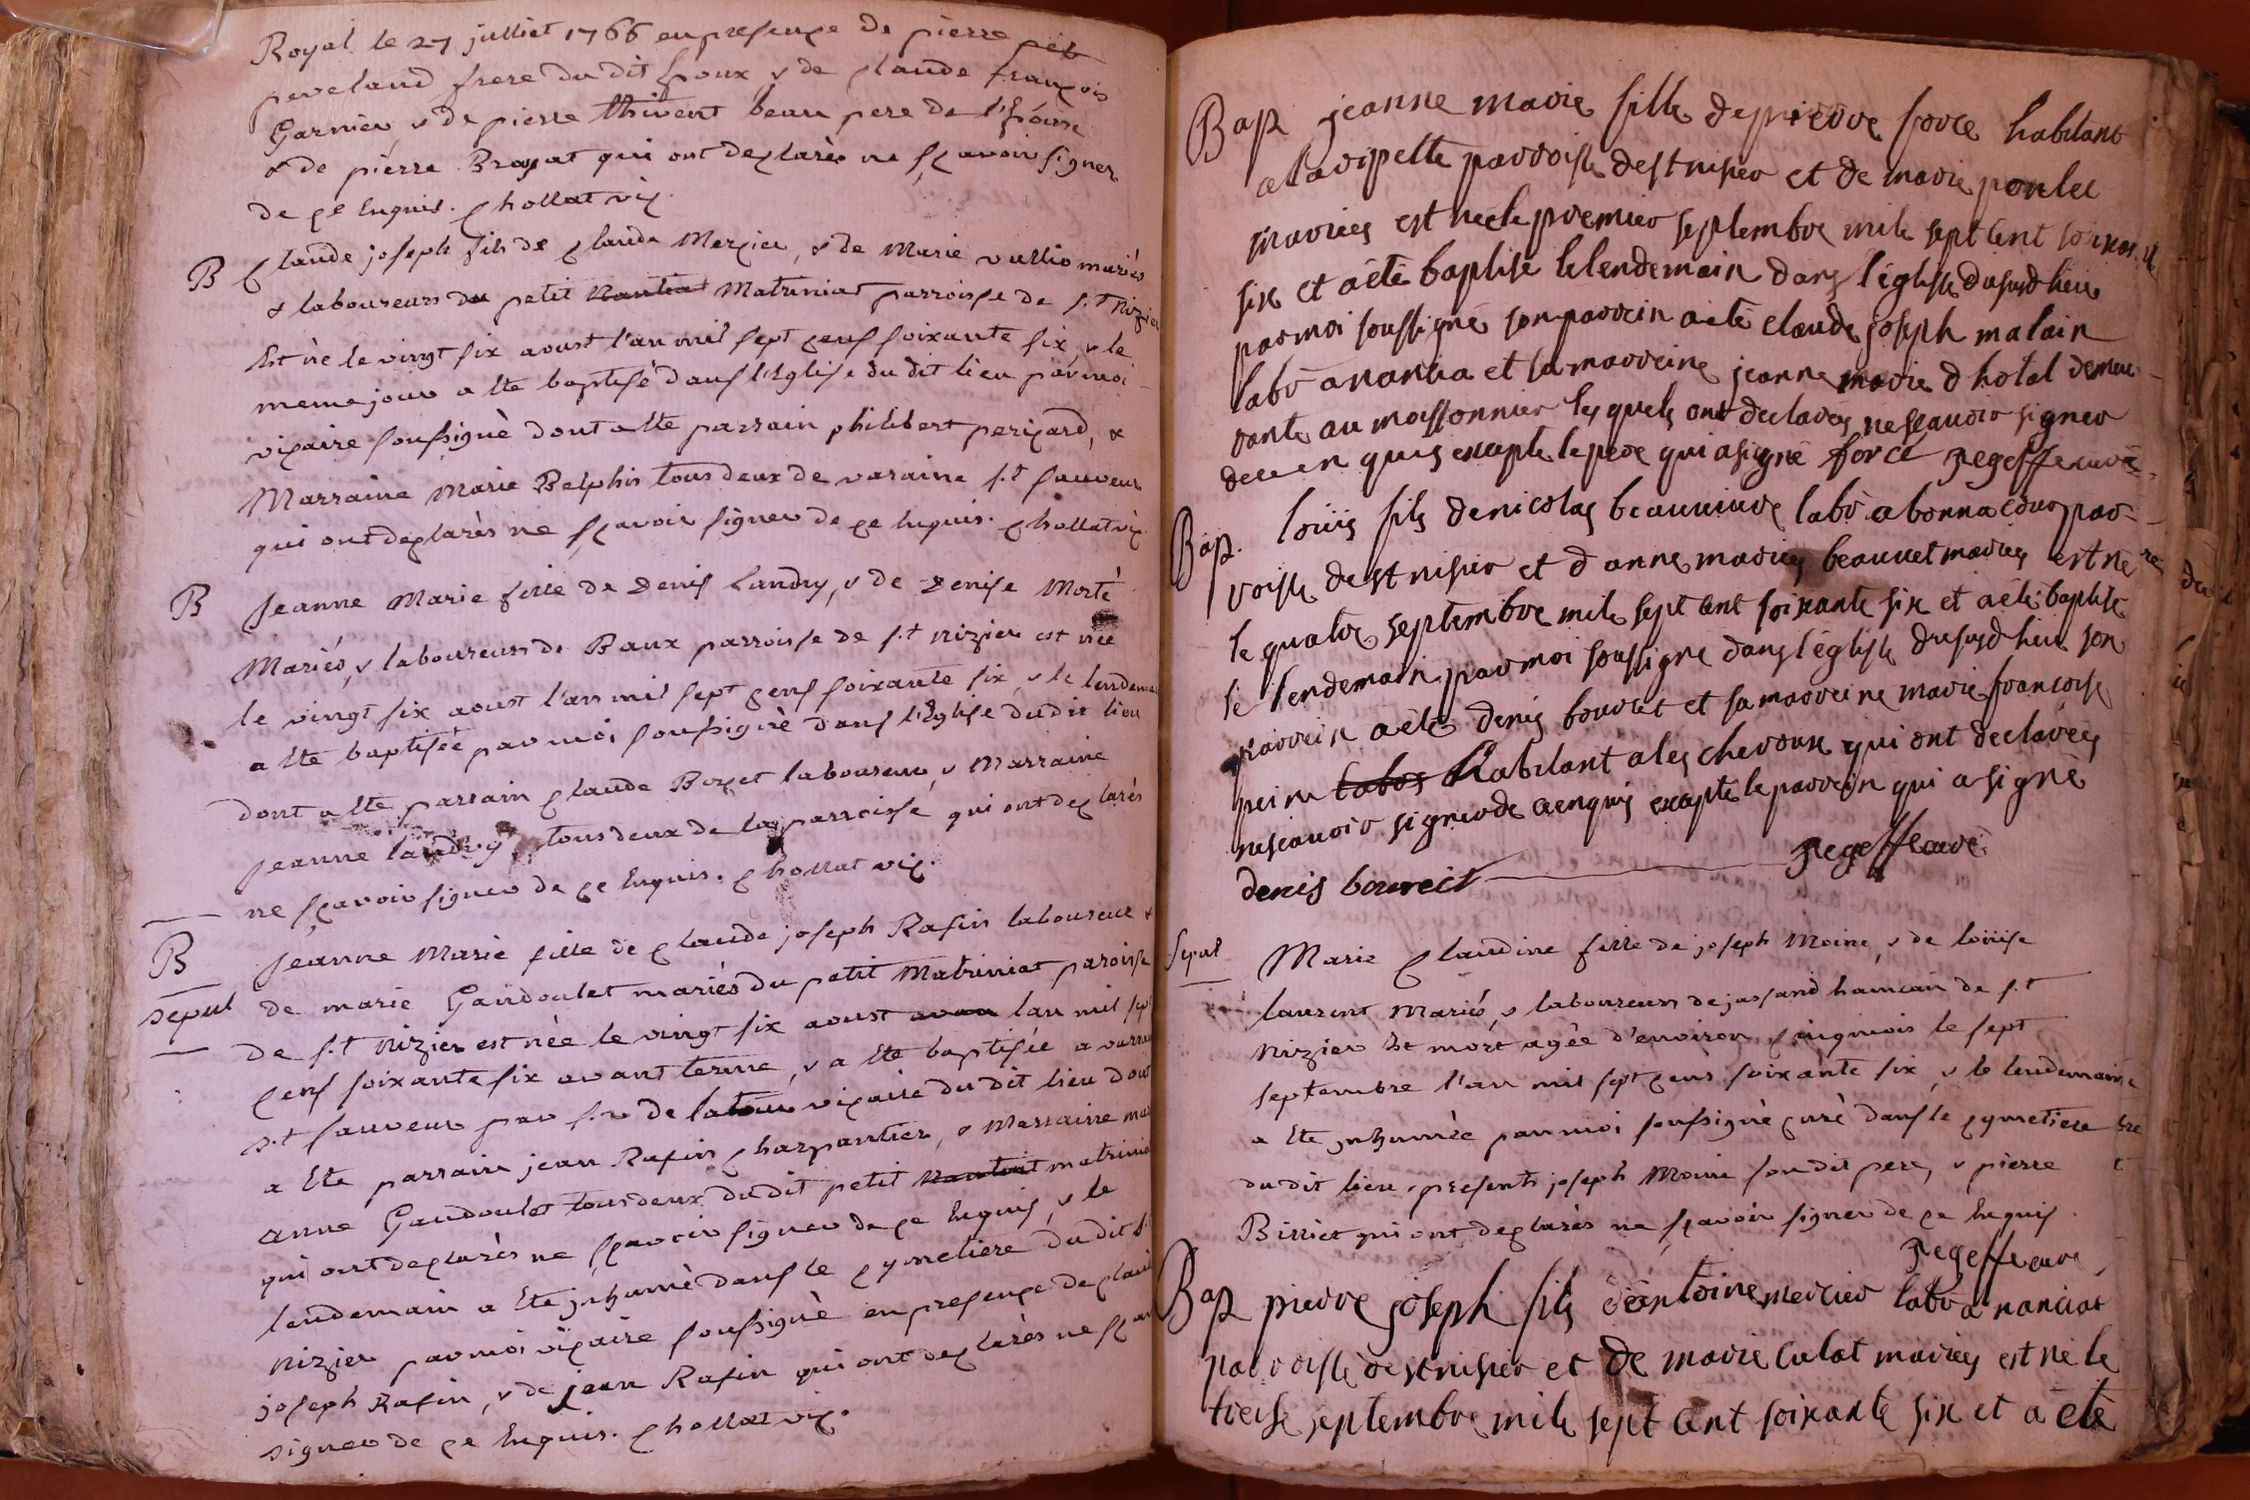 Royal le 27 julliet 1766 en presençe de pierre
peveland frere du dit Epoux & de çlaude françois
Garnier & de pierre thivent beau pere de l'Epouse
& de pierre Brayat qui ont deçlarès ne sçavoir signer
de çe Enquis. çhollat viç.
B Çlaude joseph fils de çlaude Merçier, & de Marie vullio mariès
& laboureurs du petit Matriniat parroisse de s.t Nizier
Est nè le vingt six aoust l'an mil sept çens soixante six, & le
meme jour a Ete baptisè dans l'Eglise du dit lieu par moi
viçaire soussignè dont a Ete parrain philibert periçard, &
Marraine Marie Belphis tous deux de varaine s.t sauveur
qui ont deçlarès ne sçavoir signer de çe Enquis. çhollat viç.
B Jeanne Marie fille de Denis Landry, & de Denise Morté
Mariés, & laboureurs de Baux parroisse de s.t nizier est née
le vingt six aoust l'an mil sept çens soixante six, & le lendemain
a Ete baptisèe par moi soussignè dans l'Eglise du dit lieu
dont a Ete parrain çlaude Boyet laboureur, & Marraine
jeanne landry tous deux de la parroisse, qui ont deçlarès
ne sçavoir signer de çe Enquis. çhollat viç.
B Jeanne Marie fille de çlaude joseph Rafin laboureur &
sepul de marie Gaudoulet mariès du petit Matriniat paroisse
de s.t Nizier est nèe le vingt six aoust l'an mil sept
çens soixante six avant terme, & a Ete baptisée a varaine
s.t sauveur par s.r de latour viçaire du dit lieu dont
a Ete parrain jean Rafin çharpantier, & Marraine
anne Gaudoulet tous deux du dit petit matriniat
qui ont deçlarès ne sçavoir signer de çe Enquis, & le
lendemain a Ete jnhumè dans le çymetiere du dit s.t
Nizier par moi viçaire soussignè en presençe de çlaude
joseph Rafin, & de jean Rafin qui ont deçlarès ne sçavoir
signer de çe Enquis. çhollat viç.
Bap jeanne marie fille de pierre force habitant
a lavipelle parroisse de st nisier et de marie poulet
mariees est neé le premier septembre mile sept cent soixante
six et a été baptise le lendemain dans l'église du susd lieu
par moi soussigné son parrein a eté claude joseph malain
labr a nantia et sa marreine jeanne marie d hotal demeu-
rante au moissonnier lesquels ont declarés ne scauoir signer
de ce enquis excepte le pere qui a signé force regeffe curé
Bap. loüis fils de nicolas beauuiure labr a bonnacour par-
roisse de st nisier et d anne mariey beauuet mariey est né
le quatre septembre mile sept cent soixante six et a eté baptisé
le lendemain par moi soussigne dans l'église du susd lieu son
parrein a eté denis bouret et sa marreine marie francoise
habitant a les chevroux qui ont declarées
ne scauoir signer de ce enquis excepte le parrein qui a signé
denis boureit regeffe curé
Sepul Marie Çlaudine fille de joseph Moine, & de loüise
laurent Mariés, & laboureurs de jassand hameau de s.t
Nizier Est mort agèe d'environ çinq mois le sept
septembre l'an mil sept çens soixante six, & le lendemain
a Ete jnhumèe par moi soussignè çuré dans le çymetiere
du dit lieu, presents joseph Moine son dit pere, & pierre
Birriet qui ont deçlarès ne sçavoir signer de çe Enquis.
regeffe cure
Bap pierre joseph fils d'antoine mercier labr a nanciat
parroisse de st nisier et de marie culat mariey est né le
treise septembre mile sept cent soixante six et a été